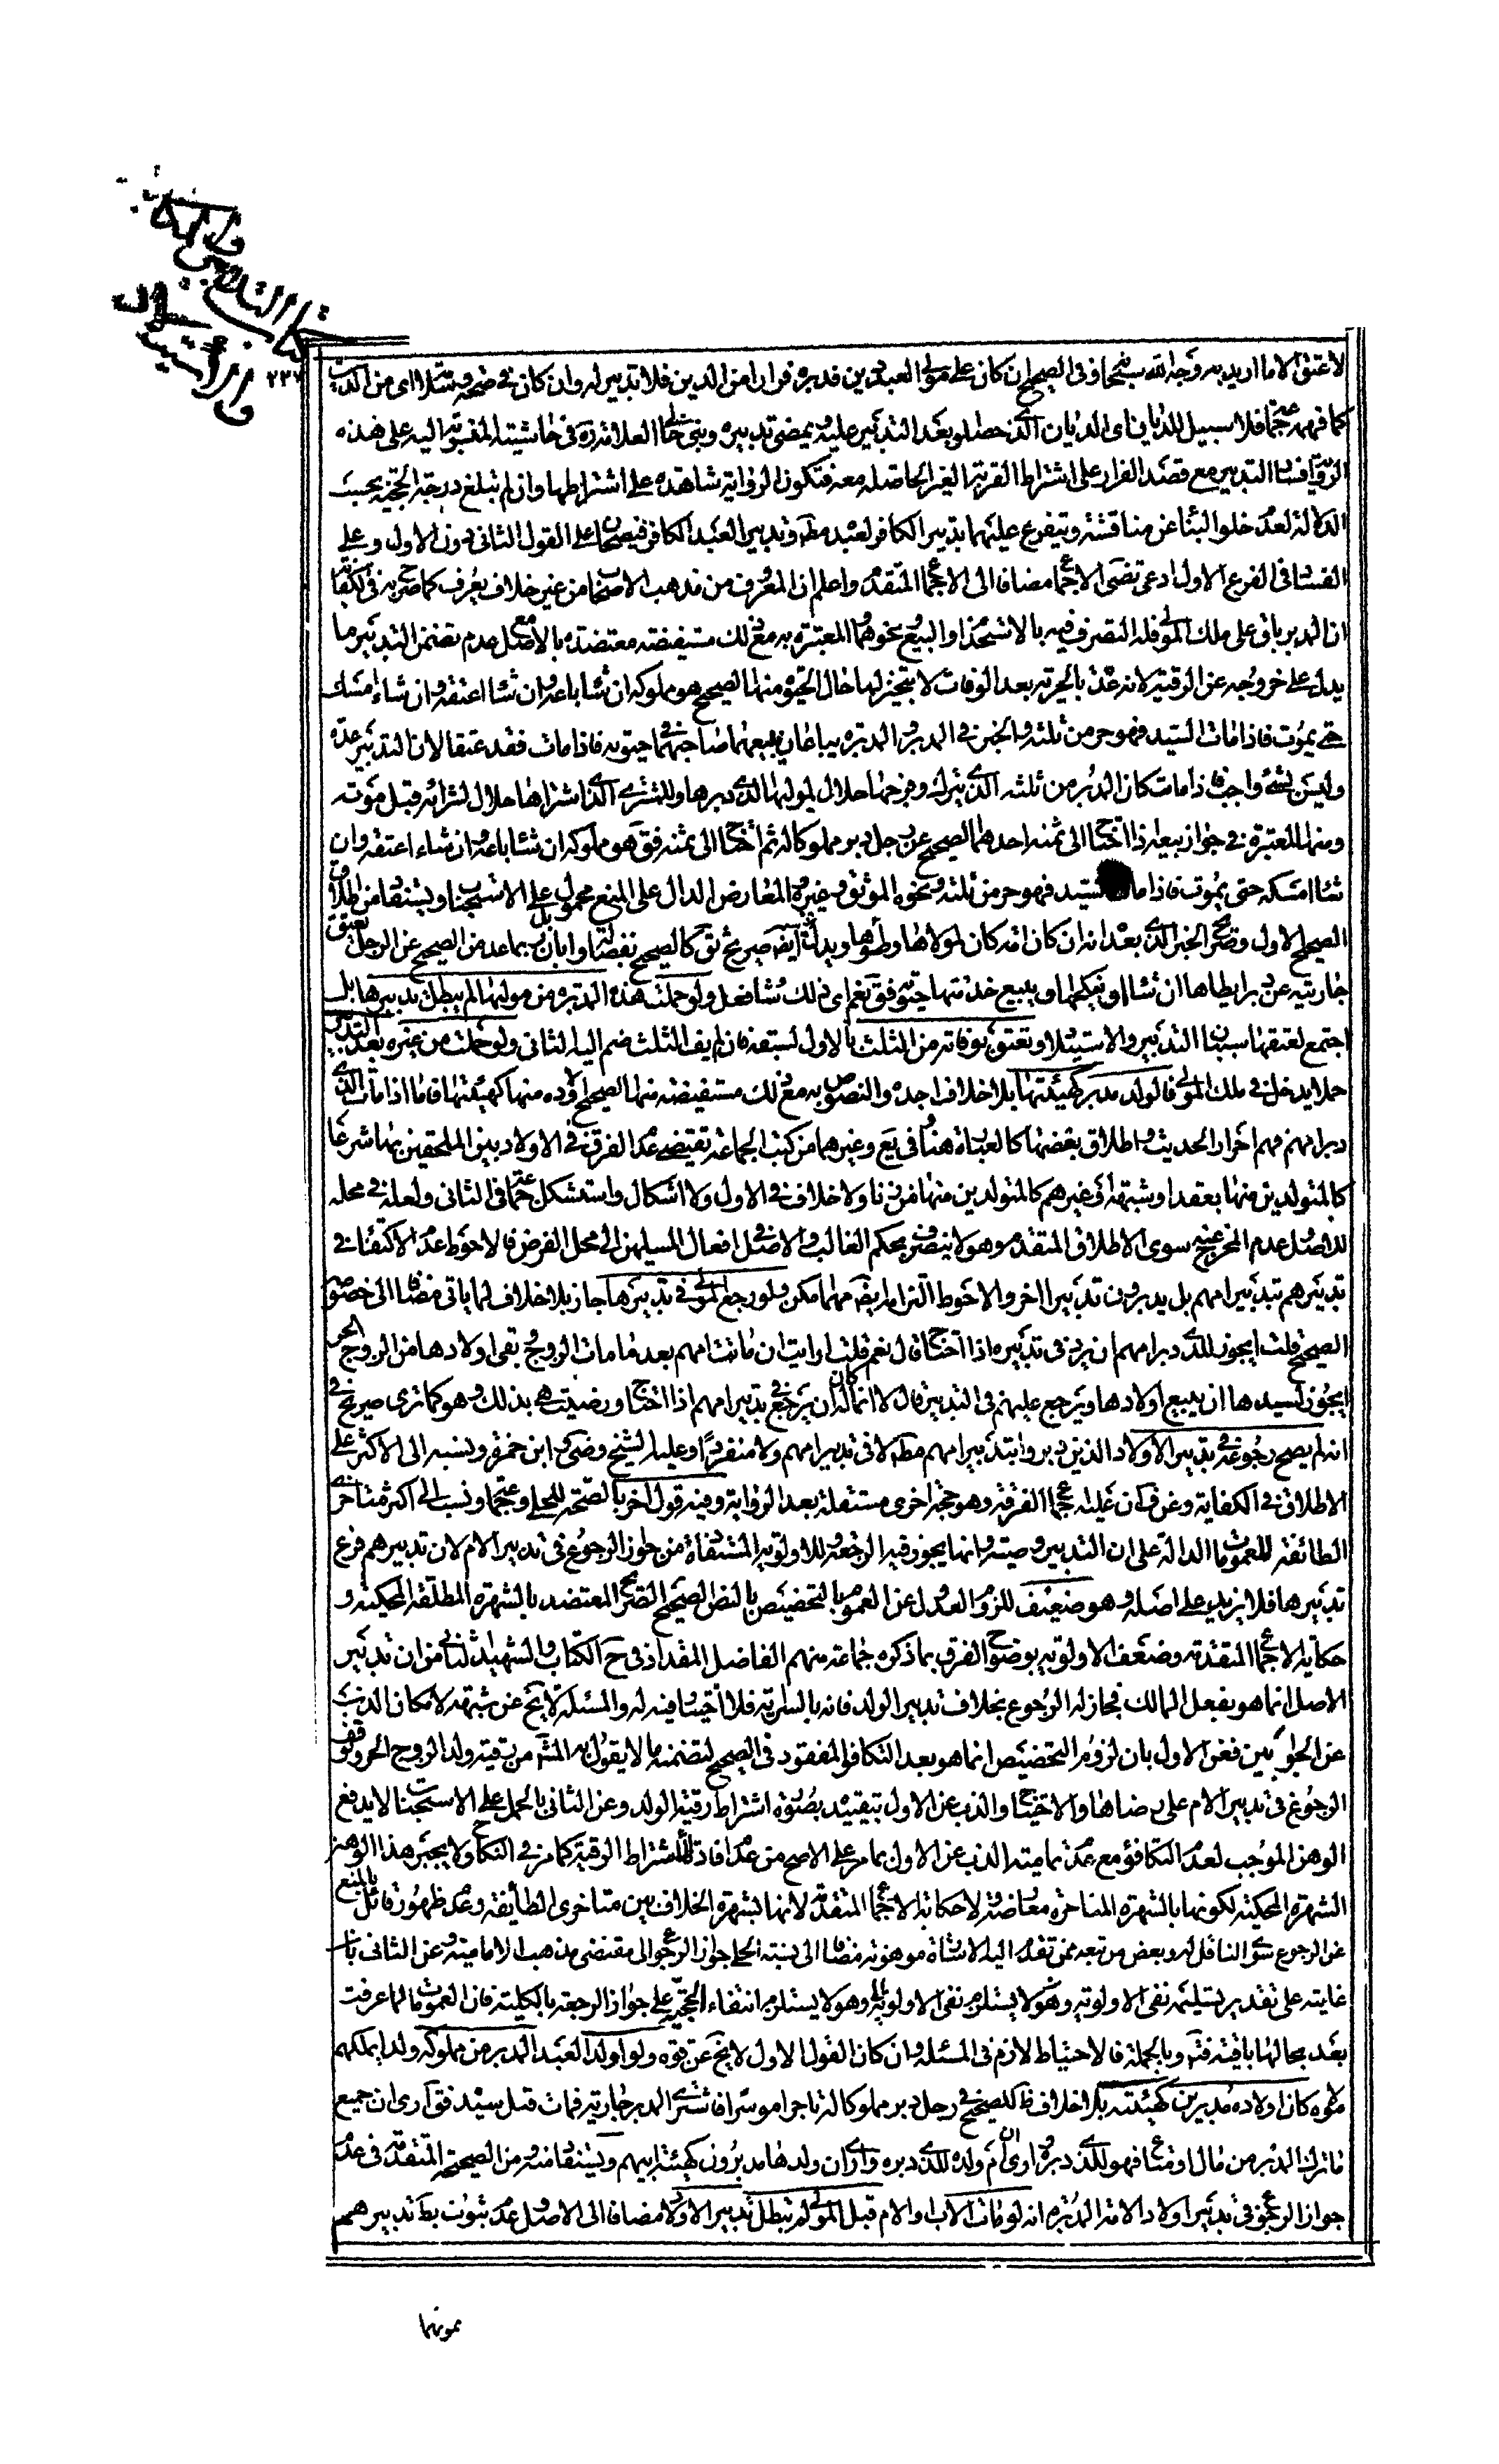 كتاب التدبير والمكاتبة
والاستيلاد
٢٣٧
لا عتق الا ما اريد به وجه الله سبحانه وفي الصحيح ان كان على مولى العبد دين فدبره فرارا من الدين فلا تدبير له وان كان في صحة وسلامة اي من الدين
كما فهمه جماعة فلا سبيل للديان اي الدين الذي حصل بعد التدبير عليه ويمضي تدبيره وبنى خالنا العلامة ره في حاشيته المنسوبة اليه على هذه
الرواية فساد التدبير مع قصد الفرار على اشتراط القربة الغير الحاصلة معه فتكون الرواية شاهدة على اشتراطها وان لم تبلغ درجة الحجية بحسب
الدلالة لعدم خلو البناء عن مناقشة ويتفرع عليهما تدبير الكافر لعبده مط وتدبير العبد الكافر فيصحان على القول الثاني دون الاول وعلى
الفساد في الفرع الاول ادعى المرتضى الاجماع مضافا الى الاجماع المتقدم واعلم ان المعروف من مذهب الاصحاب من غير خلاف يعرف كما صرح به في الكفاية
ان المدبر باق على ملك المولى فله التصرف فيه بالاستخدام والبيع ونحوهما والمعتبرة به مع ذلك مستفيضة معتضدة بالاصل مع عدم تضمن التدبير ما
يدل على خروجه عن الرقية لانه عدة بالحرية بعد الوفاة لا تنجيز لها حال الحيوة منها الصحيح هو مملوكه ان شاء باعه وان شاء اعتقه وان شاء امسكه
حتى يموت فاذا مات السيد فهو حر من ثلثه والخبر في المدبر والمدبرة يباعان يبيعهما صاحبهما في حيوته فاذا مات فقد عتقا لان التدبير عدة
وليس بشيء واجب فاذا مات كان المدبر من ثلثه الذي يترك وفرجها حلال لمولاها الذي دبرها وللمشتري الذي اشتراها حلال لشرائه قبل موته
ومنها المعتبرة في جواز بيعه اذا احتاج الى ثمنه احدهما الصحيح عن رجل دبر مملوكا له ثم احتاج الى ثمنه فق هو مملوكه ان شاء باعه وان شاء اعتقه وان
شاء امسكه حتى يموت فاذا مات السيد فهو حر من ثلثه ونحوه الموثق وغيره والمعارض الدال على المنع محمول على الاستحباب ويستفاد من اطلاق
الصحيح الاول وصريح الخبر الذي بعده انه ان كان امة كان لمولاها وطؤها ويدل عليه ايضا صريح ثق كالصحيح بفضالة وابان بل بهما عد من الصحيح عن الرجل يعتق
جاريته عن دبر ايطاها ان شاء او ينكحها او يبيع خدمتها حيوته فق نعم اي ذلك شاء فعل ولو حملت هذه المدبرة من مولاها لم يبطل تدبيرها بل
اجتمع لعتقها سببان التدبير والاستيلاد وتعتق بوفاته من الثلث بالاول لسبقه فان لم يف الثلث ضم اليه الثاني ولو حملت من غيره بعد التدبير
حملا يدخل في ملك المولى فالولد مدبر كهيئتها بلا خلاف اجده والنصوص به مع ذلك مستفيضة منها الصحيح اولاده منها كهيئتها فاذا مات الذي
دبر امهم فهم احرار الحديث واطلاق بعضها كالعبارة هنا وفي يع وغيرهما من كتب الجماعة تقتضي عدم الفرق في الاولاد بين الملحقين بها شرعا
كالمتولدين منها بعقد او شبهة وغيرهم كالمتولدين منها من زنا ولا خلاف في الاول ولا اشكال واستشكل جماعة في الثاني ولعله في محله
للاصل وعدم المخرج عنه سوى الاطلاق المتقدم وهو لا ينصرف بحكم الغالب والاصل في افعال المسلمين الى محل الفرض فالاحوط عدم الاكتفاء في
تدبيرهم بتدبير امهم بل يدبرون تدبيرا اخر والاحوط التزامه ايضا مهما امكن ولو رجع المولى في تدبيرها جاز بلا خلاف لما ياتي مضافا الى خصوص
الصحيح قلت ايجوز للذي دبر امهم ان يرد في تدبيره اذا احتاج قال نعم قلت ارايت ان ماتت امهم بعد ما مات الزوج وبقي اولادها من الزوج الحر
ايجوز لسيدها ان يبيع اولادها ويرجع عليهم في التدبير قال لا انما كان له ان يرجع في تدبير امهم اذا احتاج ورضيت هي بذلك وهو كما ترى صريح في
انه لم يصح رجوعه في تدبير الاولاد الذين دبروا بتدبير امهم مط لا في تدبير امهم ولا منفردا وعليه الشيخ والقاضي وابن حمزة ونسبه الى الاكثر على
الاطلاق في الكفاية وعن ف ان عليه اجماع الفرقة وهو حجة اخرى مستقلة بعد الرواية وفيه قول اخر بالصحة للحلي وجماعة ونسب الى اكثر متاخري
الطائفة للعمومات الدالة على ان التدبير وصية وانها يجوز فيه الرجعة وللاولوية المستفادة من جواز الرجوع في تدبير الام لان تدبيرهم فرع
تدبيرها فلا يزيد على اصله وهو ضعيف للزوم العدول عن العموم بالتخصيص بالنص الصحيح الصريح المعتضد بالشهرة المطلقة المحكية و
حكاية الاجماع المتقدمة وضعف الاولوية بوضوح الفرق بما ذكره جماعة منهم الفاضل المقداد في ح الكتاب والشهيد الثاني من ان تدبير
الاصل انما هو بفعل المالك فجاز له الرجوع بخلاف تدبير الولد فانه بالسراية فلا اختيار فيه له والمسئلة لا تخ عن شبهة لامكان الذب
عن الجوابين فعن الاول بان لزوم التخصيص انما هو بعد التكافؤ المفقود في الصحيح لتضمنه ما لا يقول به المشهور من رقية ولد الزوج الحر وتوقف
الرجوع في تدبير الام على رضاها والاحتياج والذب عن الاول بتقييده بصورة اشتراط رقية الولد وعن الثاني بالحمل على الاستحباب لا يدفع
الوهن الموجب لعدم التكافؤ مع عدم تمامية الذب عن الاول بما مر على الاصح من عدم افادة الاشتراط الرقية كما مر في النكاح ولا يجبر هذا الوهن
الشهرة المحكية لكونها بالشهرة المتاخرة معارضة ولا حكاية الاجماع المتقدم لانها بشهرة الخلاف بين متاخري الطائفة وعدم ظهور قائل بالمنع
عن الرجوع سوى الناقل له وبعض من تبعه ممن تقدم اليه الاشارة موهونة مضافا الى نسبة الحلي جواز الرجوع الى مقتضى مذهب الامامية وعن الثاني بان
غايته على تقدير تسليمه نفي الاولوية وهو لا يستلزم انتفاء الحجة على جواز الرجعة بالكلية فان العمومات كما عرفت
بعد بحالها باقية فتم وبالجملة فالاحتياط لازم في المسئلة وان كان القول الاول لا يخ عن قوة ولو اولد العبد المدبر من مملوكة ولدا يملكهم
مولاه كان اولاده مدبرين كهيئته بلا خلاف للصحيح في رجل دبر مملوكا له تاجرا موسرا فاشترى المدبر جارية فمات قبل سيده فق ارى ان جميع
ما ترك المدبر من مال او متاع فهو للذي دبره وارى ان ام ولده للذي دبره وارى ان ولدها مدبرون كهيئة ابيهم ويستفاد منه ومن الصحيح المتقدم في عدم
جواز الرجوع في تدبير اولاد الامة المدبرة انه لو مات الاب او الام قبل المولى لم تبطل تدبير الاولاد مضافا الى الاصل وعدم ثبوت بط تدبيرهم
بموتهما